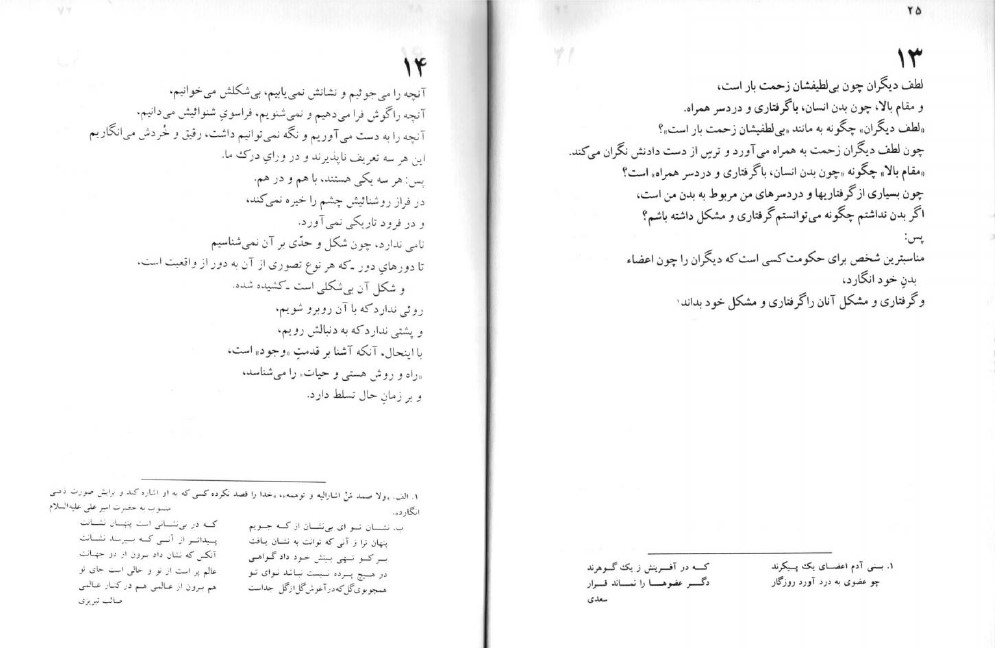 ۲۵
۱۳
لطف دیگران چون بی‌لطیفشان زحمت بار است،
و مقام بالا، چون بدن انسان، باگرفتاری و دردسر همراه.
«لطف دیگران» چگونه به مانند «بی‌لطفیشان زحمت بار است»؟
چون لطف دیگران زحمت به همراه می‌آورد و ترس از دست دادنش نگران می‌کند.
«مقام بالا» چگونه «چون بدن انسان، باگرفتاری و دردسر همراه» است؟
چون بسیاری ازگرفتاریها و دردسرهای من مربوط به بدن من است،
اگر بدن نداشتم چگونه می‌توانستم‌گرفتاری و مشکل داشته باشم؟
پس:
مناسبترین شخص برای حکومت کسی است که دیگران را چون اعضاء
بدنِ خود انگارد،
وگرفتاری و مشکل آنان راگرفتاری و مشکل خود بداند۱
۱. بـنـی آدم اعـضـای یک پـیـکرند کـه در آفـریـنش ز یک گـوهرند
چو عضوی به درد آورد روزگار دگـر عضوهـا را نـمـاند قـرار
سعدی
۱۴
آنچه را می‌جوئیم و نشانش نمی‌یابیم، بی‌شکلش می‌خوانیم،
آنچه راگوش فرا می‌دهیم و نمی‌شنویم، فراسویِ شنوائیش می‌دانیم.
آنچه را به دست می‌آوریم و نگه نمی‌توانیم داشت، رقیق و خُردش می‌انگاریم
این هر سه تعریف ناپذیرند و در ورایِ درك ما.
پس: هر سه یکی هستند، با هم و در هم.
در فراز روشنائیش چشم را خیره نمی‌کند،
و در فرود تاریکی نمی‌آورد.
نامی ندارد، چون شکل و حدّی بر آن نمی‌شناسیم
تا دورهایِ دور ـ‌که هر نوع تصوری از آن به دور از واقعیت است،
و شکل آن بی‌شکلی است ـ‌کشیده شده.
روئی نداردکه با آن روبرو شویم،
و پشتی نداردکه به دنبالش رویم،
با اینحال، آنکه آشنا بر قدمتِ «وجود» است،
«راه و روش هستی و حیات» را می‌شناسد،
و بر زمانِ حال تسلط دارد.
۱. الف. «ولا صمد مَنْ اشارالیه و توهمه،» «خدا را قصد نکرده کسی که به او اشاره کند و برایش صورت ذهنی
انگارد». منسوب به حضرت امیر علی علیه‌السلام
ب. نشـان تـو ای بی‌نشـان از کـه جـویم کـه در بی‌نشـانی است پنهـان نشـانت
پنهان ترا و آنی که توانت به نشان یافت پیـداتـر از آنـی کـه بـپرسـند نشـانت
بـر کـو تـهی بینش خـود داد گـواهـی آنکس که نشان داد برون از دو جهانت
در هـیچ پـرده نـیست نـباشد نـوای تـو عالم پر است از تو و خالی است جای تو
همچوبوی‌گل‌که‌درآغوش‌گل‌ازگل جداست هم برون از عـالمی هـم در کنـار عـالمی
صائب تبریزی